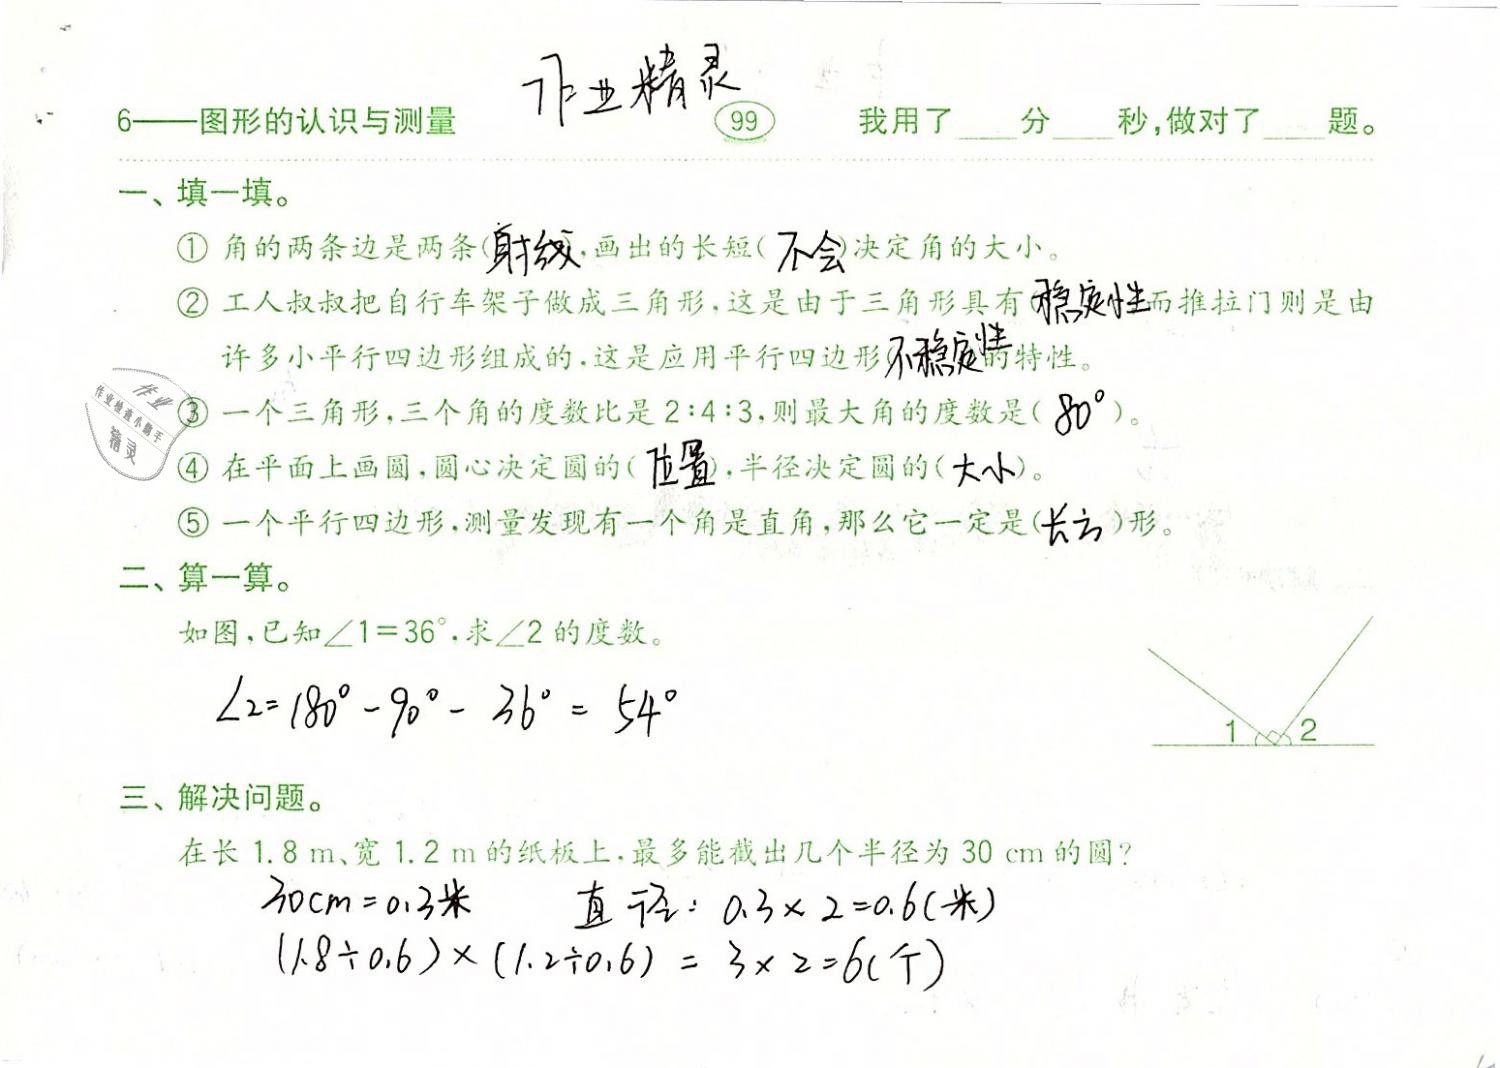 作业精灵
6——图形的认识与测量 99 我用了____分____秒,做对了____题。
一、填一填。
① 角的两条边是两条(射线),画出的长短(不会)决定角的大小。
② 工人叔叔把自行车架子做成三角形,这是由于三角形具有(稳定性而推拉门则是由
许多小平行四边形组成的,这是应用平行四边形(不稳定性的特性。
③ 一个三角形,三个角的度数比是2:4:3,则最大角的度数是(80°)。
④ 在平面上画圆,圆心决定圆的(位置),半径决定圆的(大小)。
⑤ 一个平行四边形,测量发现有一个角是直角,那么它一定是(长方)形。
作业
作业检查小助手
精灵
二、算一算。
如图,已知∠1=36°,求∠2的度数。
∠2=180°-90°-36°=54°
1 2
三、解决问题。
在长1.8 m、宽1.2 m的纸板上,最多能截出几个半径为30 cm的圆?
30cm=0.3米 直径:0.3×2=0.6(米)
(1.8÷0.6)×(1.2÷0.6)=3×2=6(个)